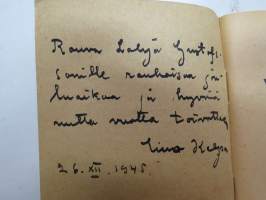 Rouva Lahja Gustafs-
sonille rauhaisaa jou-
luaikaa ja hyvää
uutta vuotta toivottaa
Eino
26.XII.1945